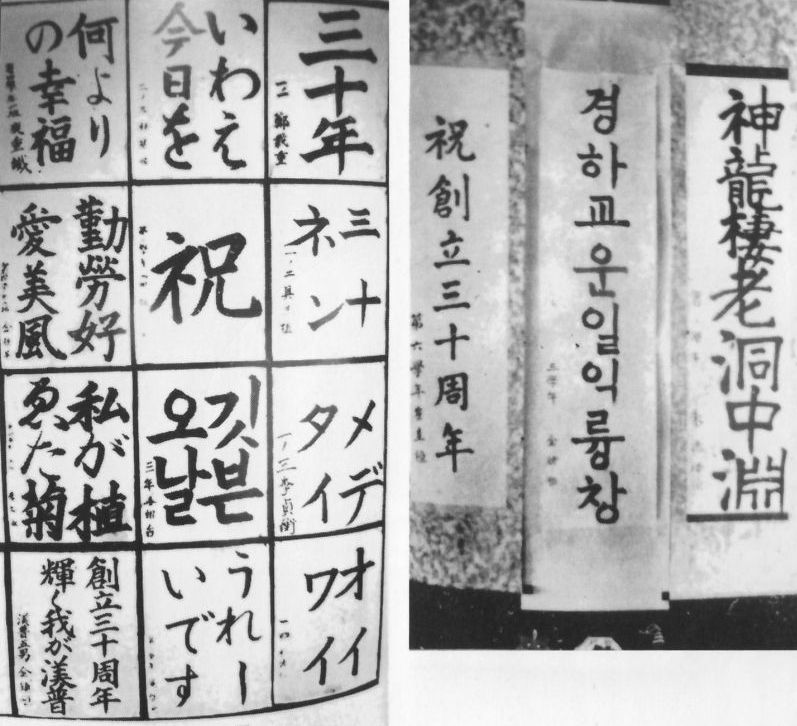 三十年
いわえ
今日を
何より
の幸福
三十
ネン
祝
勤勞好
愛美風
メデ
タイ
깃븐
오날
私が植
ゑた菊
オイ
ワイ
うれー
いです
創立三十周年
輝く我が渼普
神龍棲老洞中淵
경하교운일익륭창
祝創立三十周年
第六學年